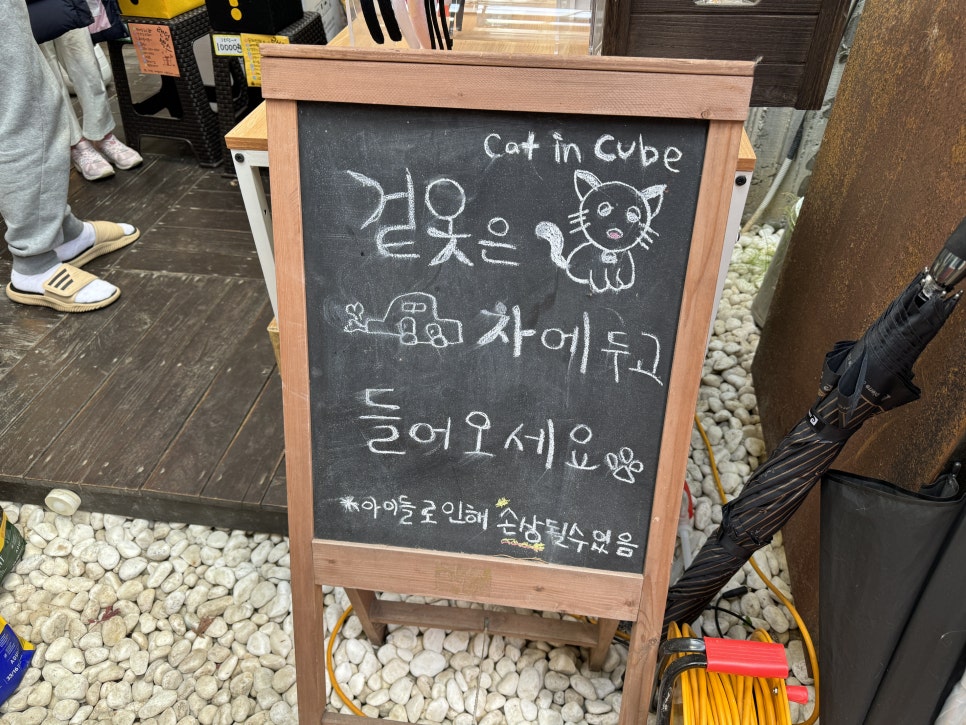 10000원
Cat in Cube
겉옷은
차에 두고
들어오세요
*아이들로 인해 손상될 수 있음